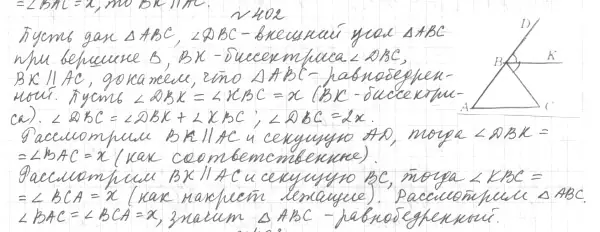 = ∠BAC = x, то BK ∥ AC.
№402
Пусть дан △ABC, ∠DBC - внешний угол △ABC
при вершине B, BK - биссектриса ∠DBC,
BK ∥ AC, докажем, что △ABC - равнобедрен-
ный. Пусть ∠DBK = ∠KBC = x (BK - биссектри-
са). ∠DBC = ∠DBK + ∠KBC; ∠DBC = 2x.
Рассмотрим BK ∥ AC и секущую AD, тогда ∠DBK =
= ∠BAC = x (как соответственные).
Рассмотрим BK ∥ AC и секущую BC, тогда ∠KBC =
= ∠BCA = x (как накрест лежащие). Рассмотрим △ABC.
∠BAC = ∠BCA = x, значит △ABC - равнобедренный.
D
B
K
A
C